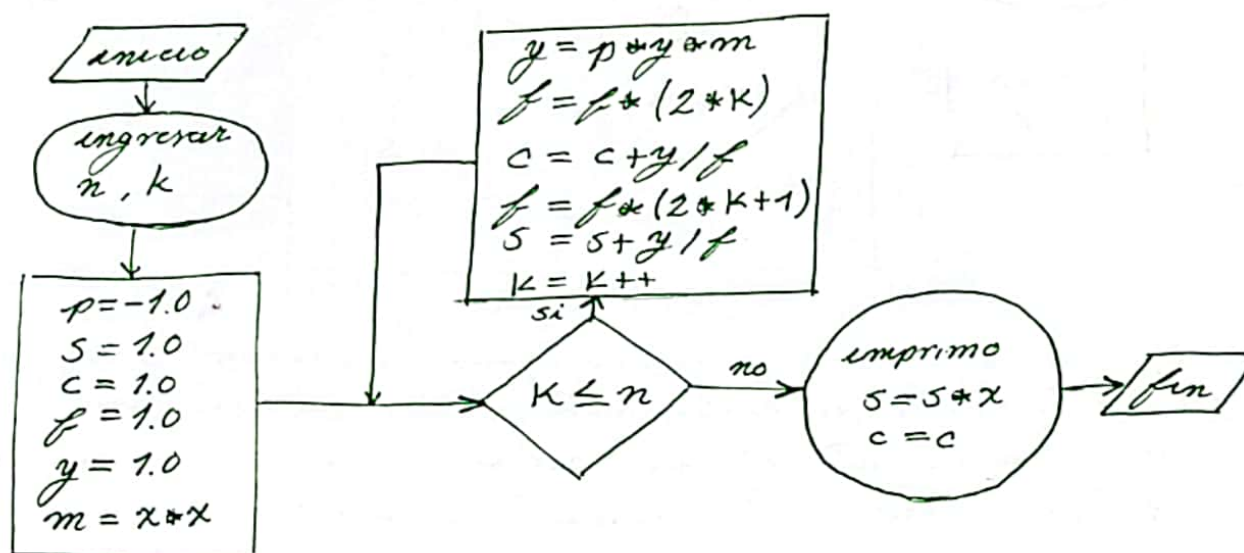 inicio
ingresar
n, k
p=-1.0
s = 1.0
c = 1.0
f = 1.0
y = 1.0
m = x*x
y = p*y*m
f = f*(2*k)
c = c+y/f
f = f*(2*k+1)
s = s+y/f
k = k++
si
k ≤ n
no
imprimo
s=s*x
c = c
fin